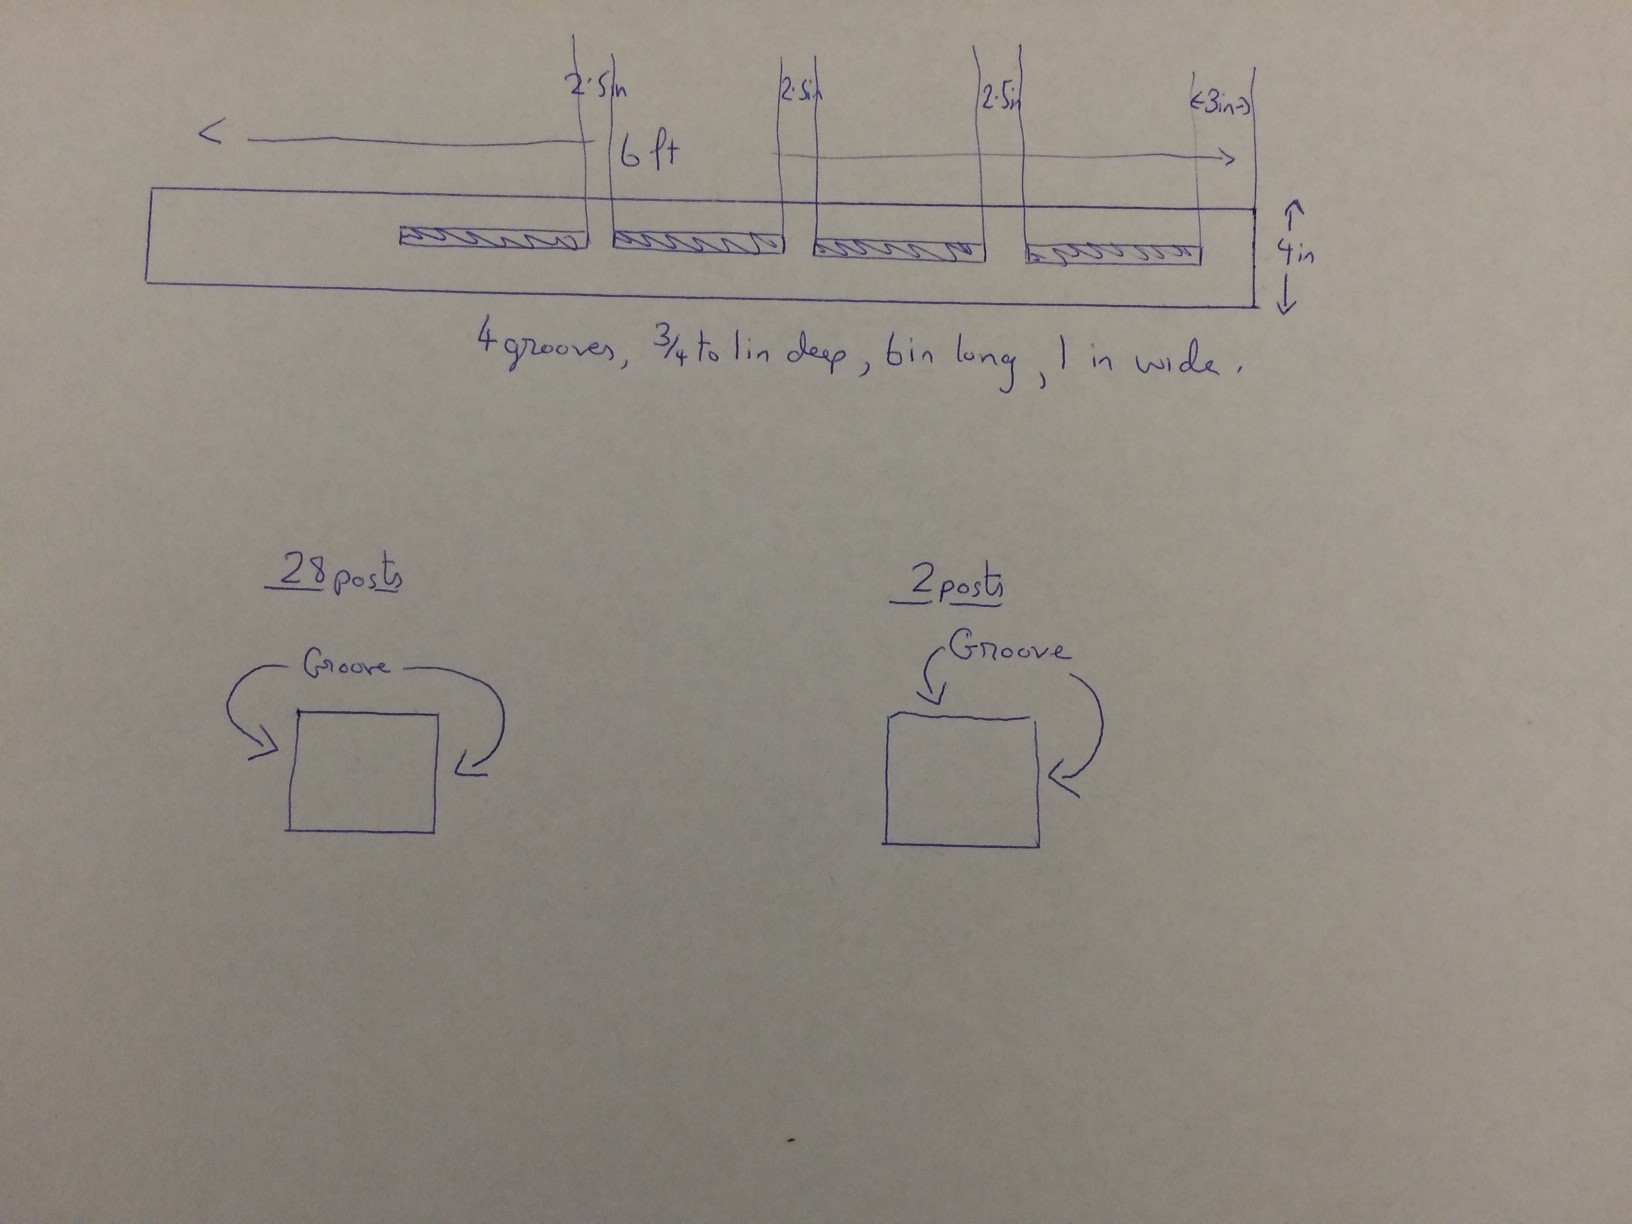 2.5in 2.5in 2.5in <3in->
6 ft
4in
4 grooves, 3/4 to 1in deep, 6in long, 1 in wide.
28 posts
2 posts
Groove
Groove